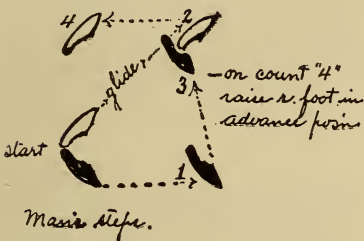 4
2
glide
3
—on count "4"
raise r. foot in
advance pos'n
start
1
steps.